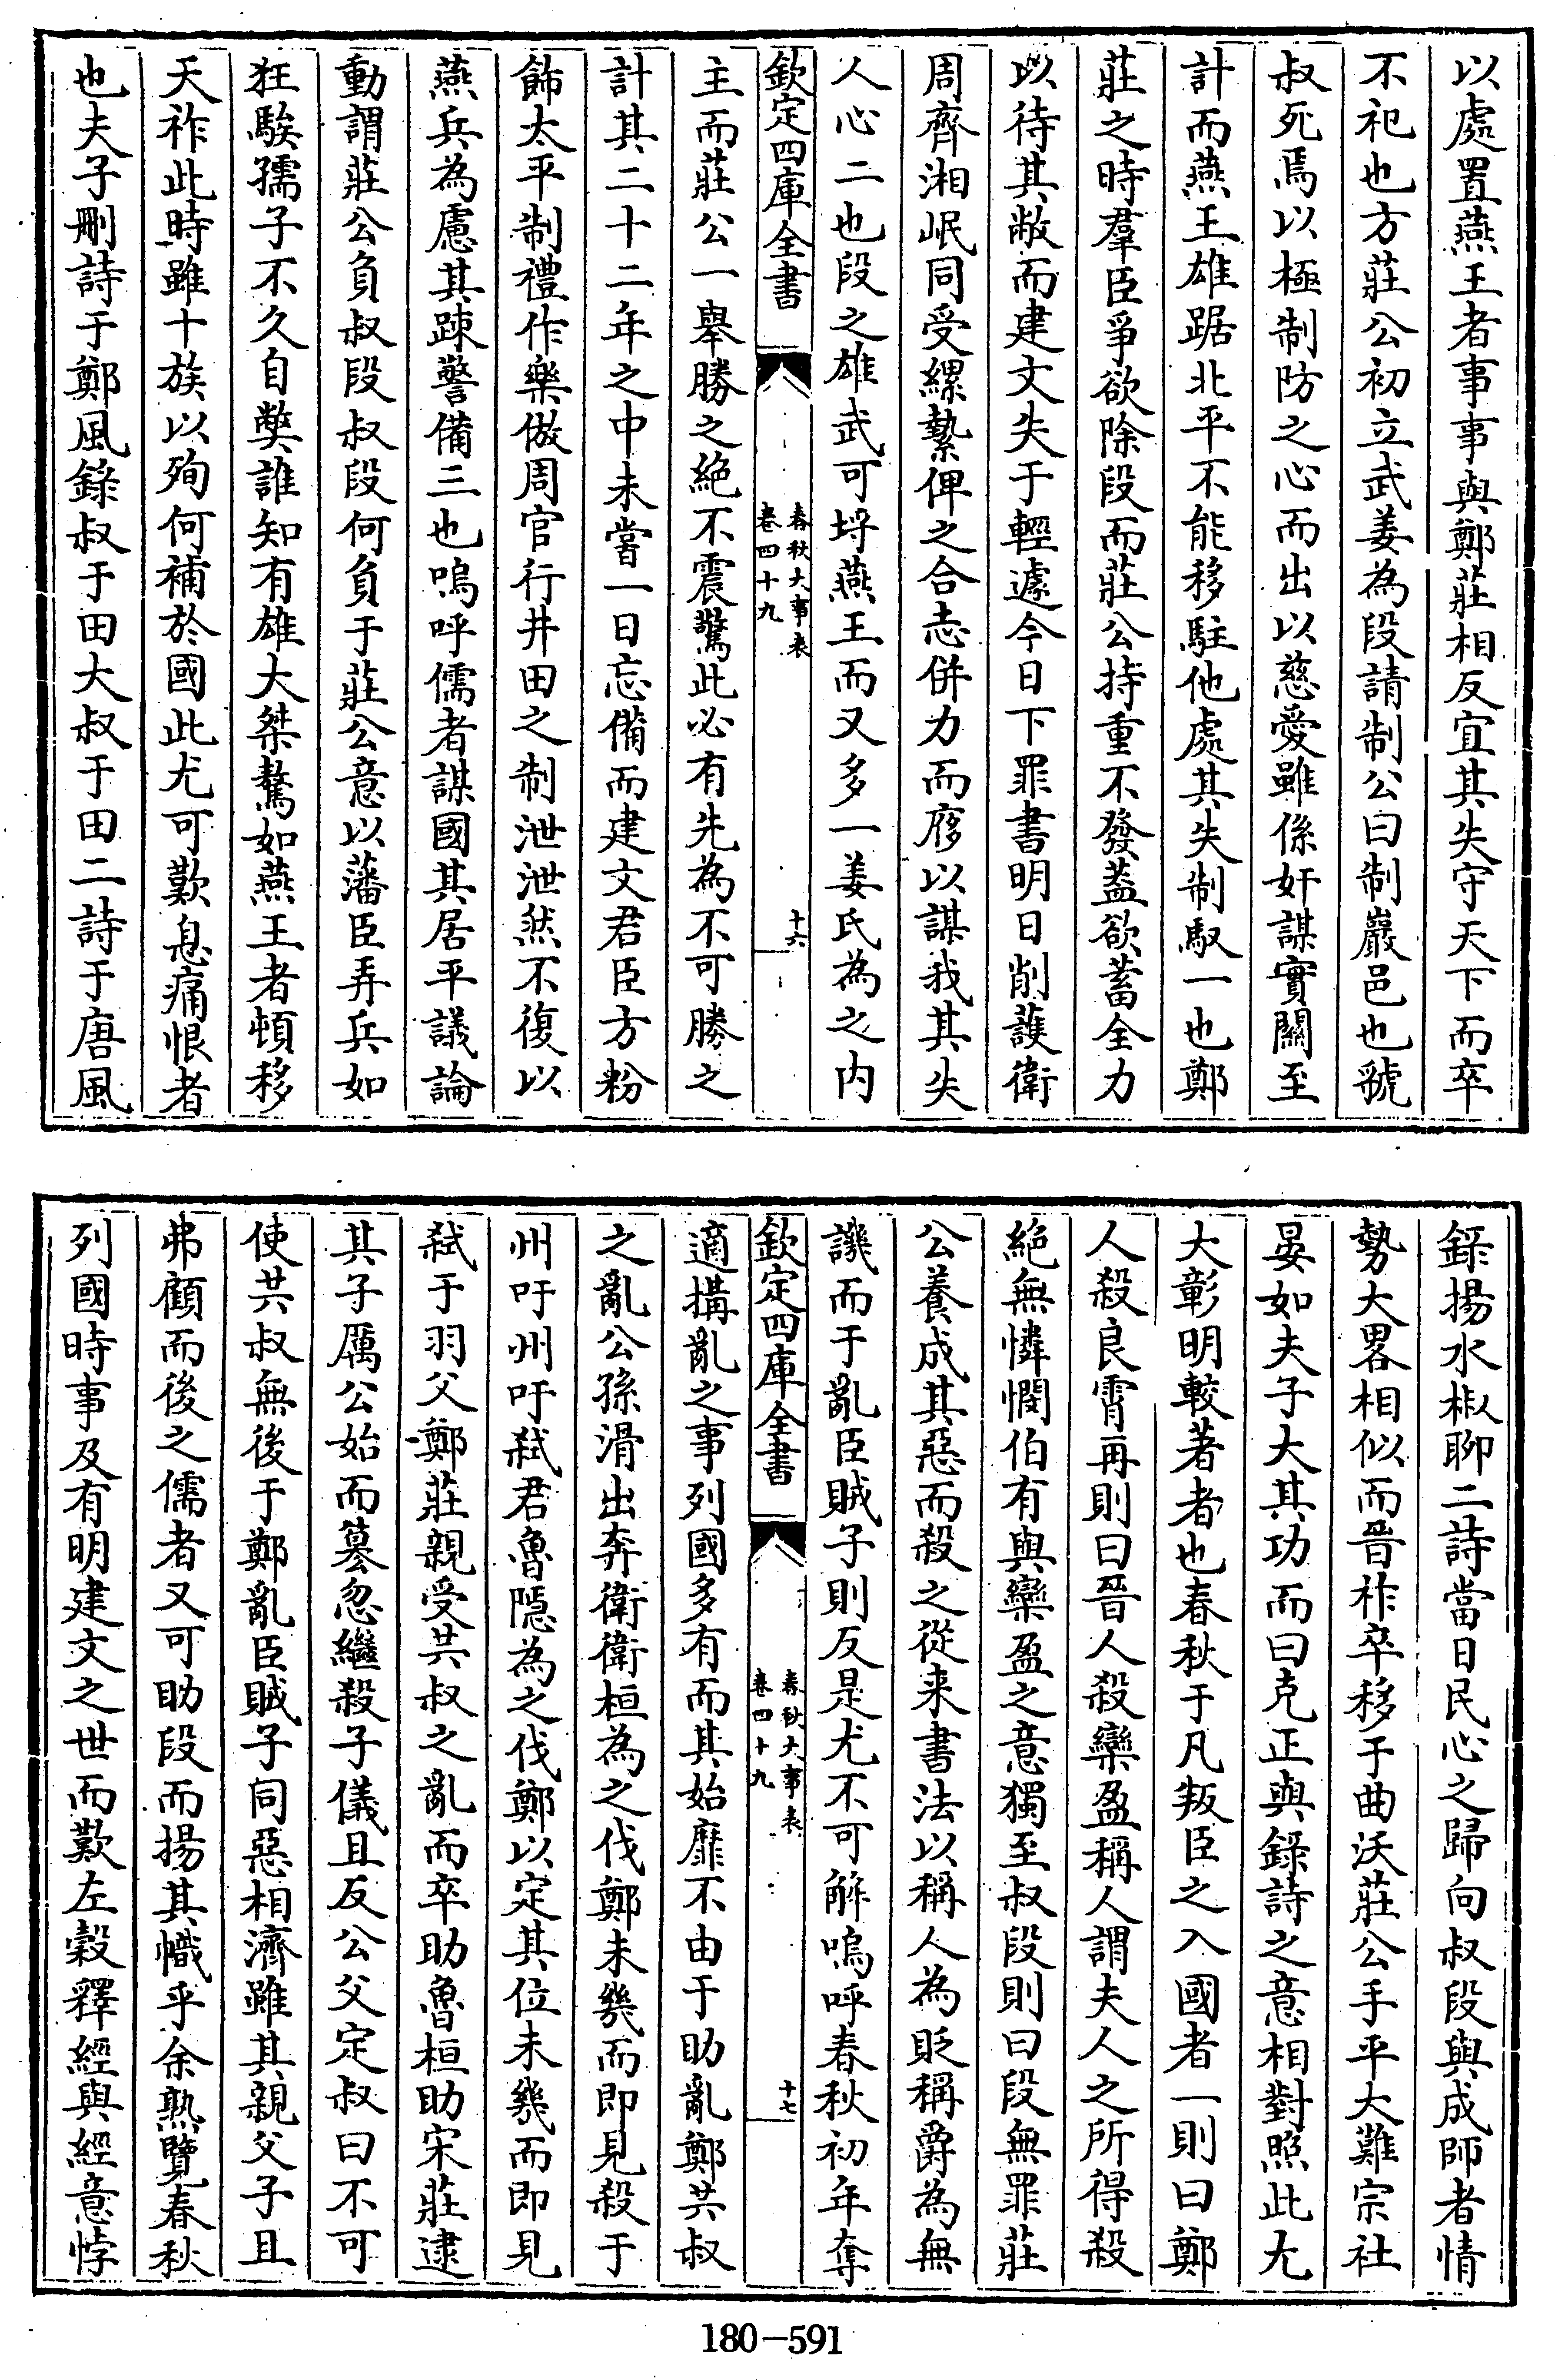 以處置燕王者事事與鄭莊相反宜其失守天下而卒
不祀也方莊公初立武姜為段請制公曰制巖邑也虢
叔死焉以極制防之心而出以慈愛雖係奸謀實關至
計而燕王雄踞北平不能移駐他處其失制馭一也鄭
莊之時羣臣爭欲除段而莊公持重不發葢欲蓄全力
以待其敝而建文失于輕遽今日下罪書明日削護衛
周齊湘岷同受縲縶俾之合志併力而厚以謀我其失
人心二也段之雄武可埒燕王而又多一姜氏為之內
欽定四庫全書
春秋大事表
卷四十九
十六
主而莊公一舉勝之絕不震驚此必有先為不可勝之
計其二十二年之中未嘗一日忘備而建文君臣方粉
飾太平制禮作樂倣周官行井田之制泄泄然不復以
燕兵為慮其踈警備三也嗚呼儒者謀國其居平議論
動謂莊公負叔段叔段何負于莊公意以藩臣弄兵如
狂騃孺子不久自斃誰知有雄大桀驁如燕王者頓移
天祚此時雖十族以殉何補於國此尤可歎息痛恨者
也夫子刪詩于鄭風錄叔于田大叔于田二詩于唐風
錄揚水椒聊二詩當日民心之歸向叔段與成師者情
勢大畧相似而晉祚卒移于曲沃莊公手平大難宗社
晏如夫子大其功而曰克正與錄詩之意相對照此尤
大彰明較著者也春秋于凡叛臣之入國者一則曰鄭
人殺良霄再則曰晉人殺欒盈稱人謂夫人之所得殺
絕無憐憫伯有與欒盈之意獨至叔段則曰段無罪莊
公養成其惡而殺之從来書法以稱人為貶稱爵為無
譏而于亂臣賊子則反是尤不可解嗚呼春秋初年奪
欽定四庫全書
春秋大事表
卷四十九
十七
適搆亂之事列國多有而其始靡不由于助亂鄭共叔
之亂公孫滑出奔衛衛桓為之伐鄭未幾而即見殺于
州吁州吁弒君魯隱為之伐鄭以定其位未幾而即見
弒于羽父鄭莊親受共叔之亂而卒助魯桓助宋莊逮
其子厲公始而簒忽繼殺子儀且反公父定叔曰不可
使共叔無後于鄭亂臣賊子同惡相濟雖其親父子且
弗顧而後之儒者又可助段而揚其幟乎余熟覽春秋
列國時事及有明建文之世而歎左穀釋經與經意悖
180-591